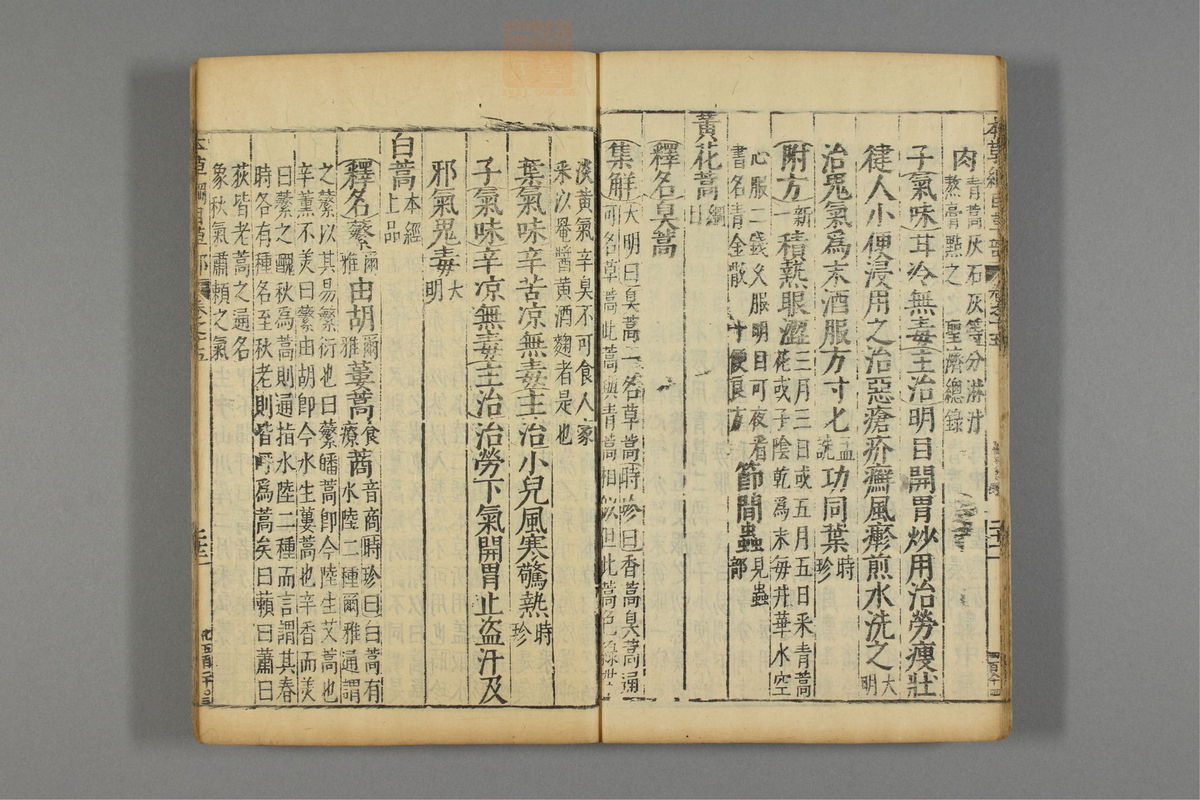 肉青蒿灰石灰等分淋汁
熬膏點之 聖濟總錄
子氣味甘冷無毒主治明目開胃炒用治勞瘦壯
健人小便浸用之治惡瘡疥癬風瘮煎水洗之大
明
治鬼氣爲末酒服方寸匕孟
詵功同葉時
珍
附方新
一積熱眼澀三月三日或五月五日采青蒿
花或子陰乾爲末每井華水空
心服二錢久服明目可夜看
書名青金散 十便良方 節間蟲見蟲
部
黃花蒿綱
目
釋名臭蒿
集解大明曰臭蒿一名草蒿時珍曰香蒿臭蒿通
可名草蒿此蒿與青蒿相似但此蒿色綠帶
淡黃氣辛臭不可食人家
采以罨醬黃酒麴者是也
葉氣味辛苦凉無毒主治小兒風寒驚熱時
珍
子氣味辛凉無毒主治治勞下氣開胃止盜汗及
邪氣鬼毒大
明
白蒿本經
上品
釋名蘩爾
雅由胡爾
雅蔞蒿食
療蔏音商時珍曰白蒿有
水陸二種爾雅通謂
之蘩以其易蘩衍也曰蘩皤蒿卽今陸生艾蒿也
辛薰不美曰蘩由胡卽今水生蔞蒿也辛香而美
曰蘩之醜秋為蒿則通指水陸二種而言謂其春
時各有種名至秋老則皆呼爲蒿矣曰藾曰蕭曰
荻皆老蒿之通名
象秋氣肅賴之氣